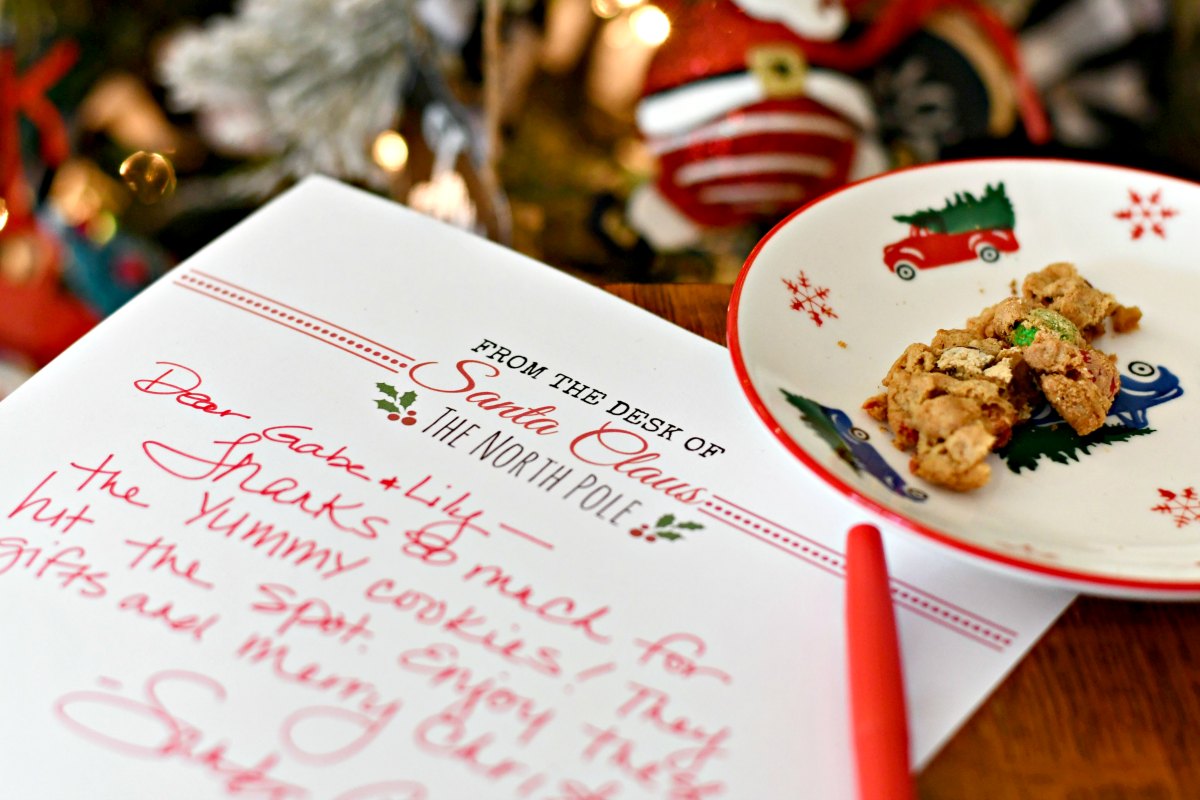 FROM THE DESK OF
Santa Claus
THE NORTH POLE
Dear Gabe + Lily —
Thanks so much for
the yummy cookies! They
hit the spot. Enjoy these
gifts and Merry Christ
- Santa